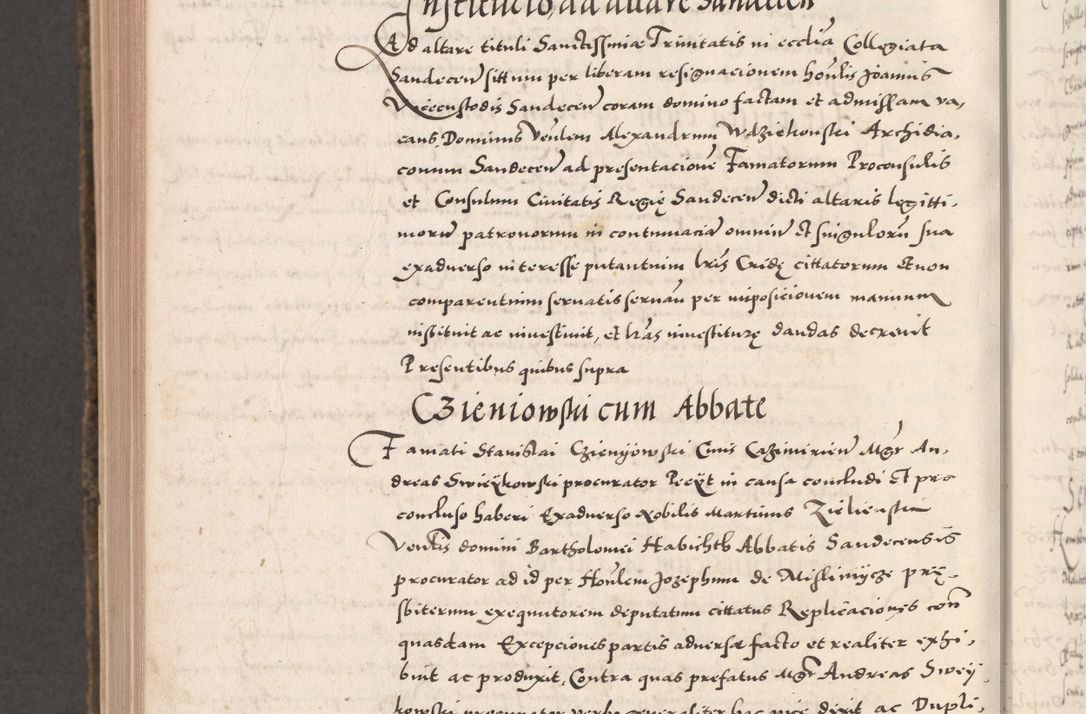 Institucio ad altare Sandecen
Ad altare tituli Sanctissimæ Trinitatis in ecclia Collegiata
Sandecen sittum per liberam resignacionem honlis Joannis
Vicecustodis Sandecen coram domino factam et admissam va,
cans Dominus Venlem Alexandrum Wdziekonski Archidia,
conum Sandecen ad presentacione Famatorum Proconsulis
et Consulum Civitatis Regię Sandecen dicti altaris legitti,
morū patronorum in contumacia omniū et singulorū sua
exadverso interesse putantium lris Cridę cittatorum et non
comparentium servatis servan per imposicionem manuum
instituit ac investivit, et lras investiturę dandas decrevit
Presentibus quibus supra
Czieniowski cum Abbate
Famati Stanislai Czienÿowski Civis Cazimirien Mgr An,
dreas Swieÿkowski procurator Peeÿt in causa concludi et pro
concluso haberi Exadverso Nobilis Martinus Zielienski
Venlis domini Bartholomei Habichth Abbatis Sandecensis
procurator ad id per Honlem Jozephum de Misliniÿcze prę,
sbiterum exequutorem deputatum cittatus Replicaciones con
quasdam Excepciones partis adversæ facto et realiter exhi,
buit ac produxit, Contra quas prefatus Mgr Andreas Swey
kowski procurator verbo generaliter hac vice dixit ac Dupli,